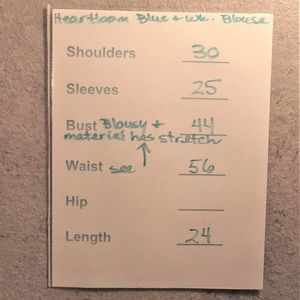 Heartloom Blue + Wh. - Blouse
Shoulders 30
Sleeves 25
Bust Blousy + 44
material has stretch
Waist see 56
Hip
Length 24